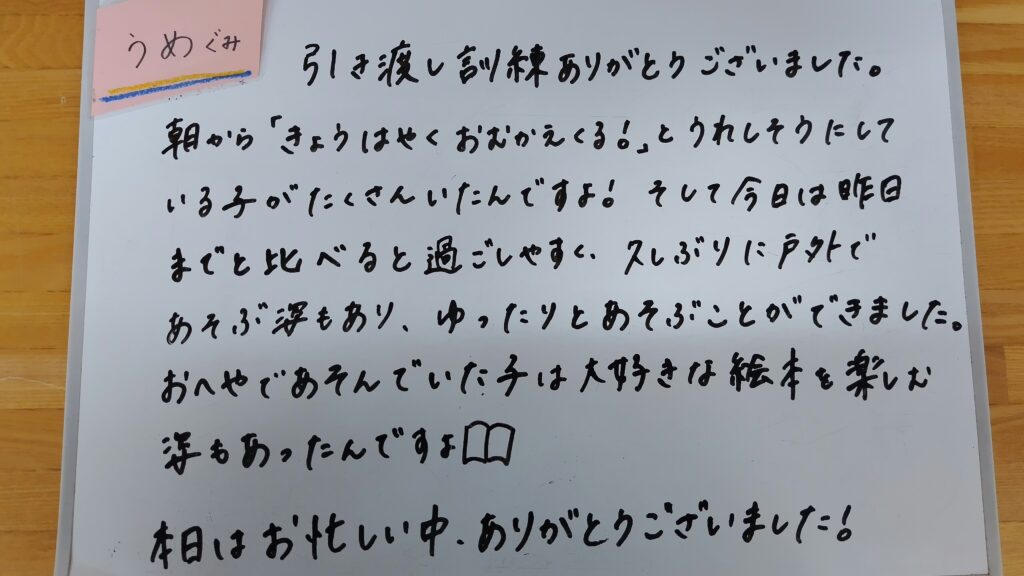 うめぐみ
引き渡し訓練ありがとうございました。
朝から「きょうはやくおむかえくる!」とうれしそうにして
いる子がたくさんいたんですよ! そして今日は昨日
までと比べると過ごしやすく、久しぶりに戸外で
あそぶ姿もあり、ゆったりとあそぶことができました。
おへやであそんでいた子は大好きな絵本を楽しむ
姿もあったんですよ
本日はお忙しい中、ありがとうございました!